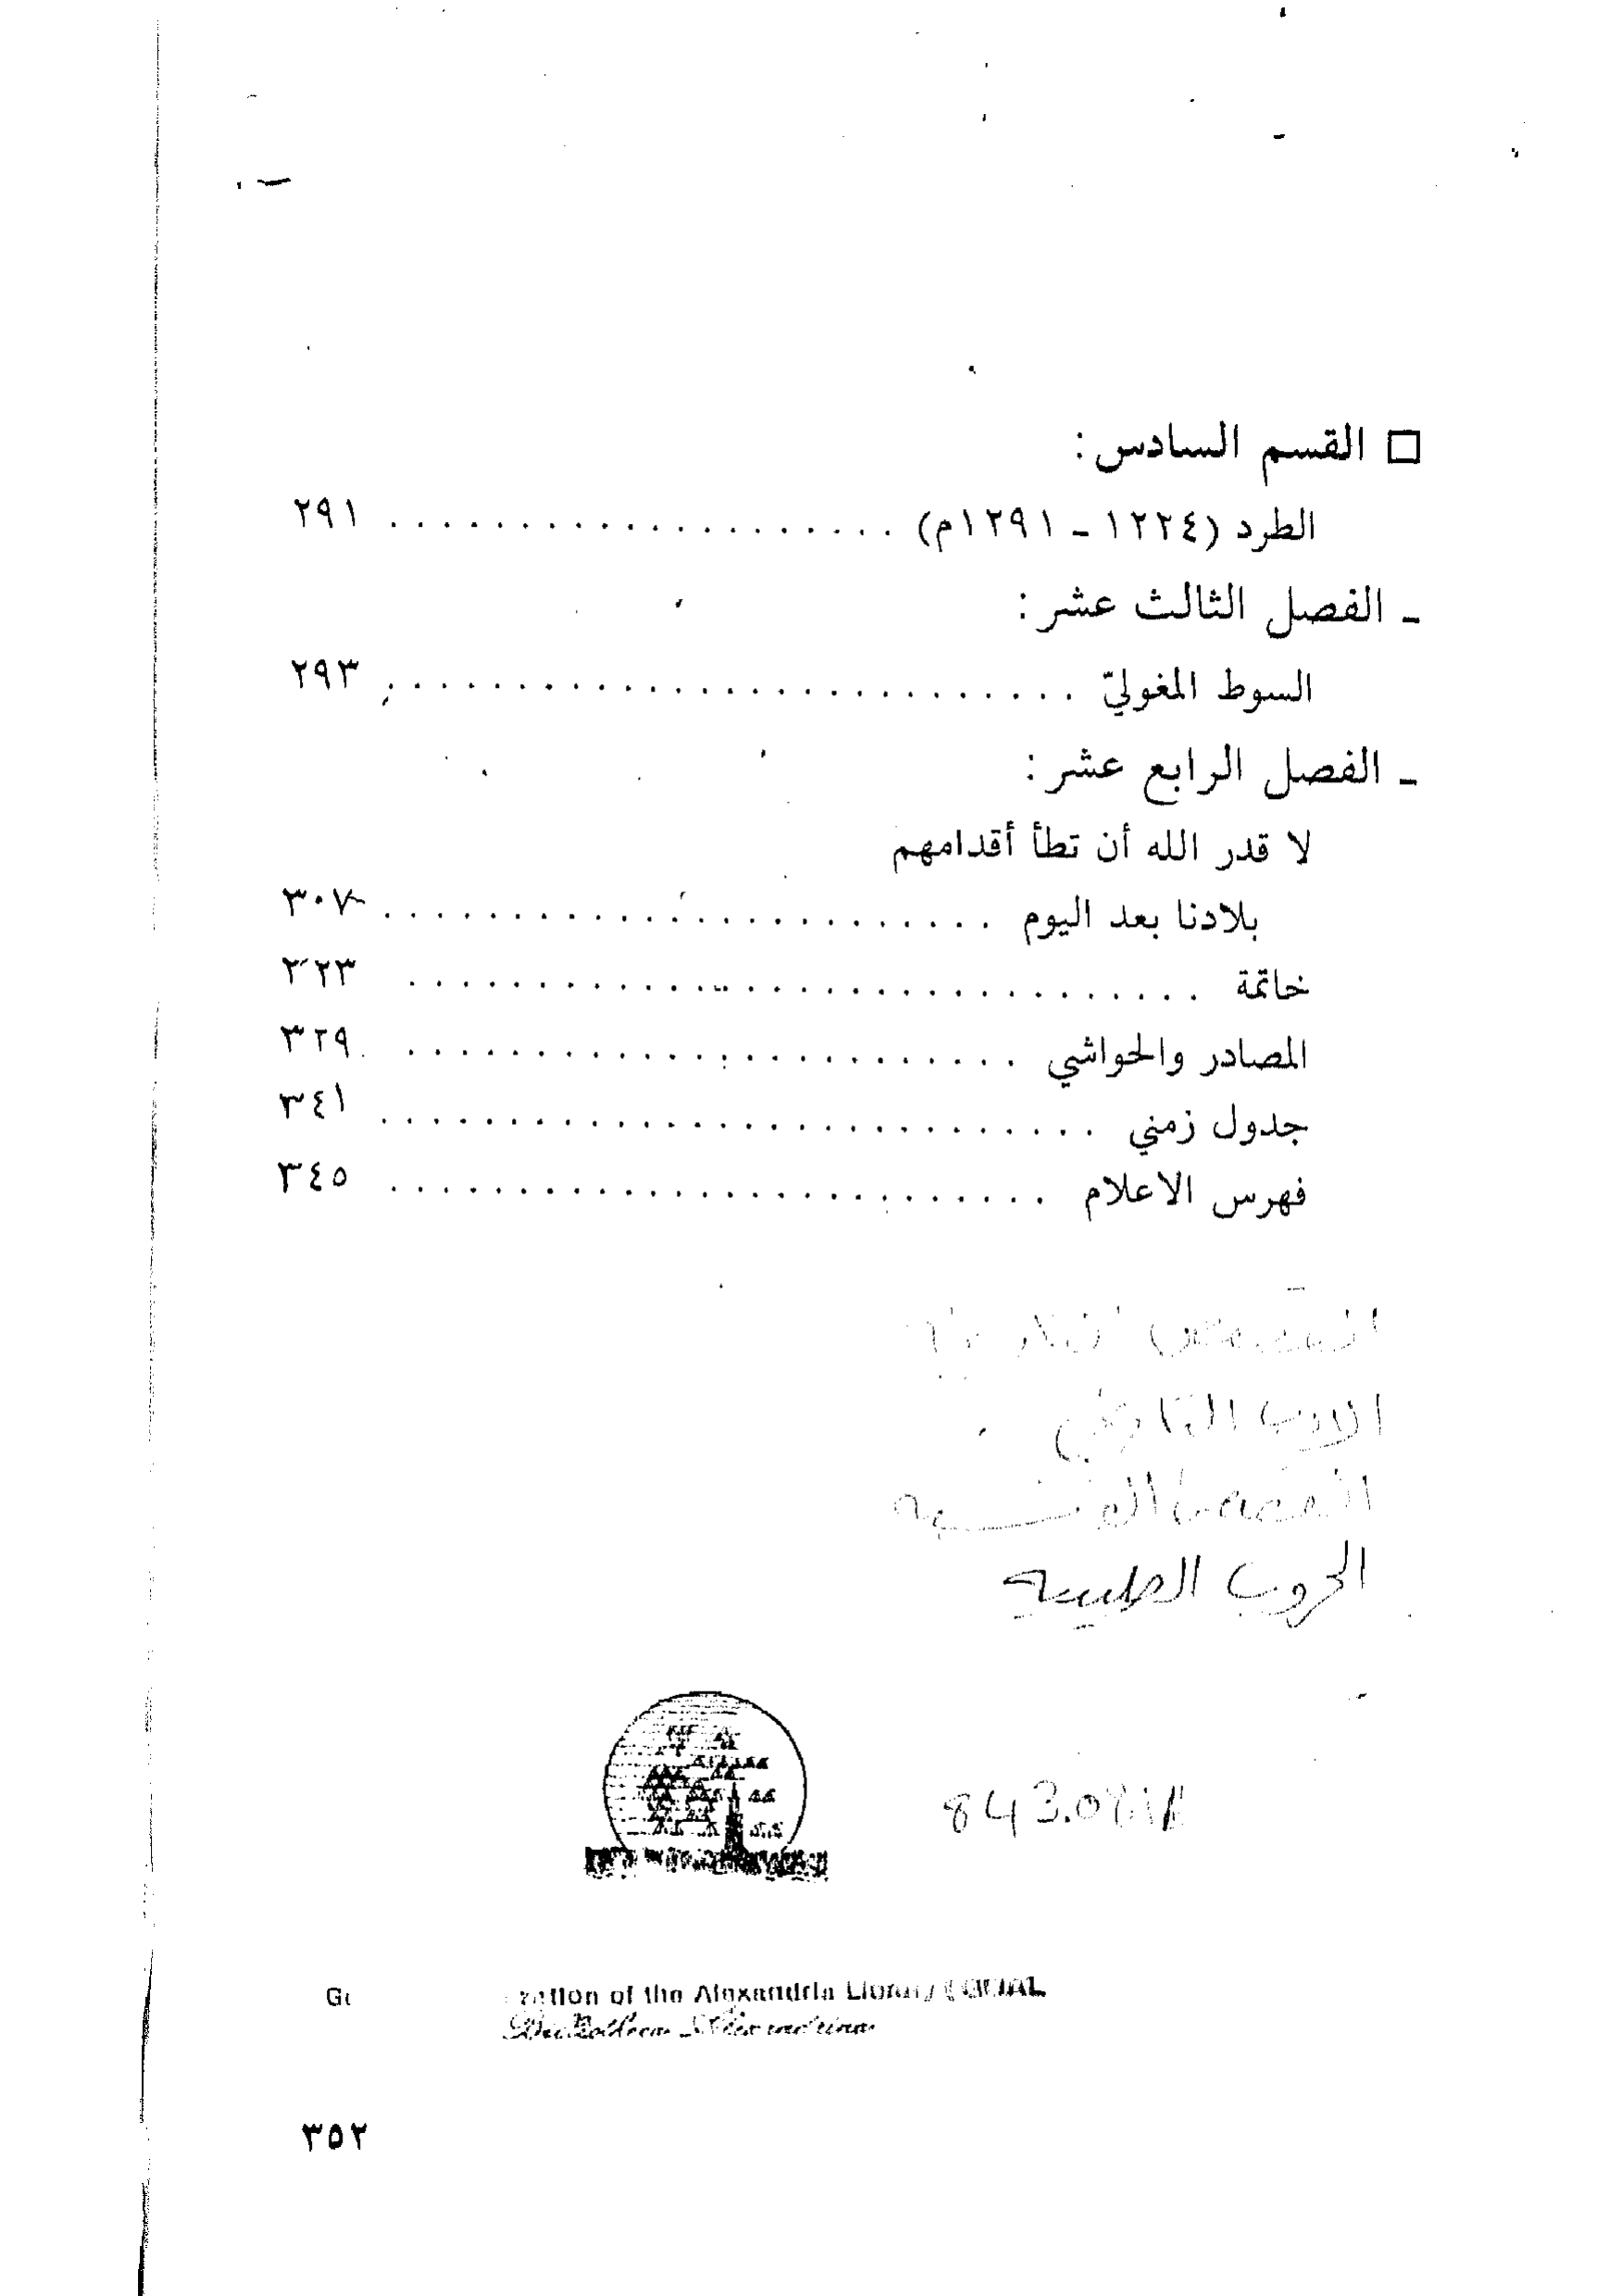 □ القسم السادس :
الطرد (١٢٢٤ - ١٢٩١م) . . . . . . . . . . . . . . . . . . . . ٢٩١
- الفصل الثالث عشر :
السوط المغوليّ . . . . . . . . . . . . . . . . . . . . . . . . . . . ٢٩٣
- الفصل الرابع عشر :
لا قدر الله أن تطأ أقدامهم
بلادنا بعد اليوم . . . . . . . . . . . . . . . . . . . . . . . . ٣٠٧
خاتمة . . . . . . . . . . . . . . . . . . . . . . . . . . . . . . . ٣٢٣
المصادر والحواشي . . . . . . . . . . . . . . . . . . . . . . . . ٣٢٩
جدول زمني . . . . . . . . . . . . . . . . . . . . . . . . . . . . ٣٤١
فهرس الاعلام . . . . . . . . . . . . . . . . . . . . . . . . . . ٣٤٥
الادب التاريخي
الحروب الصليبية
of the Alexandria Library
Bibliotheca Alexandrina
٣٥٢